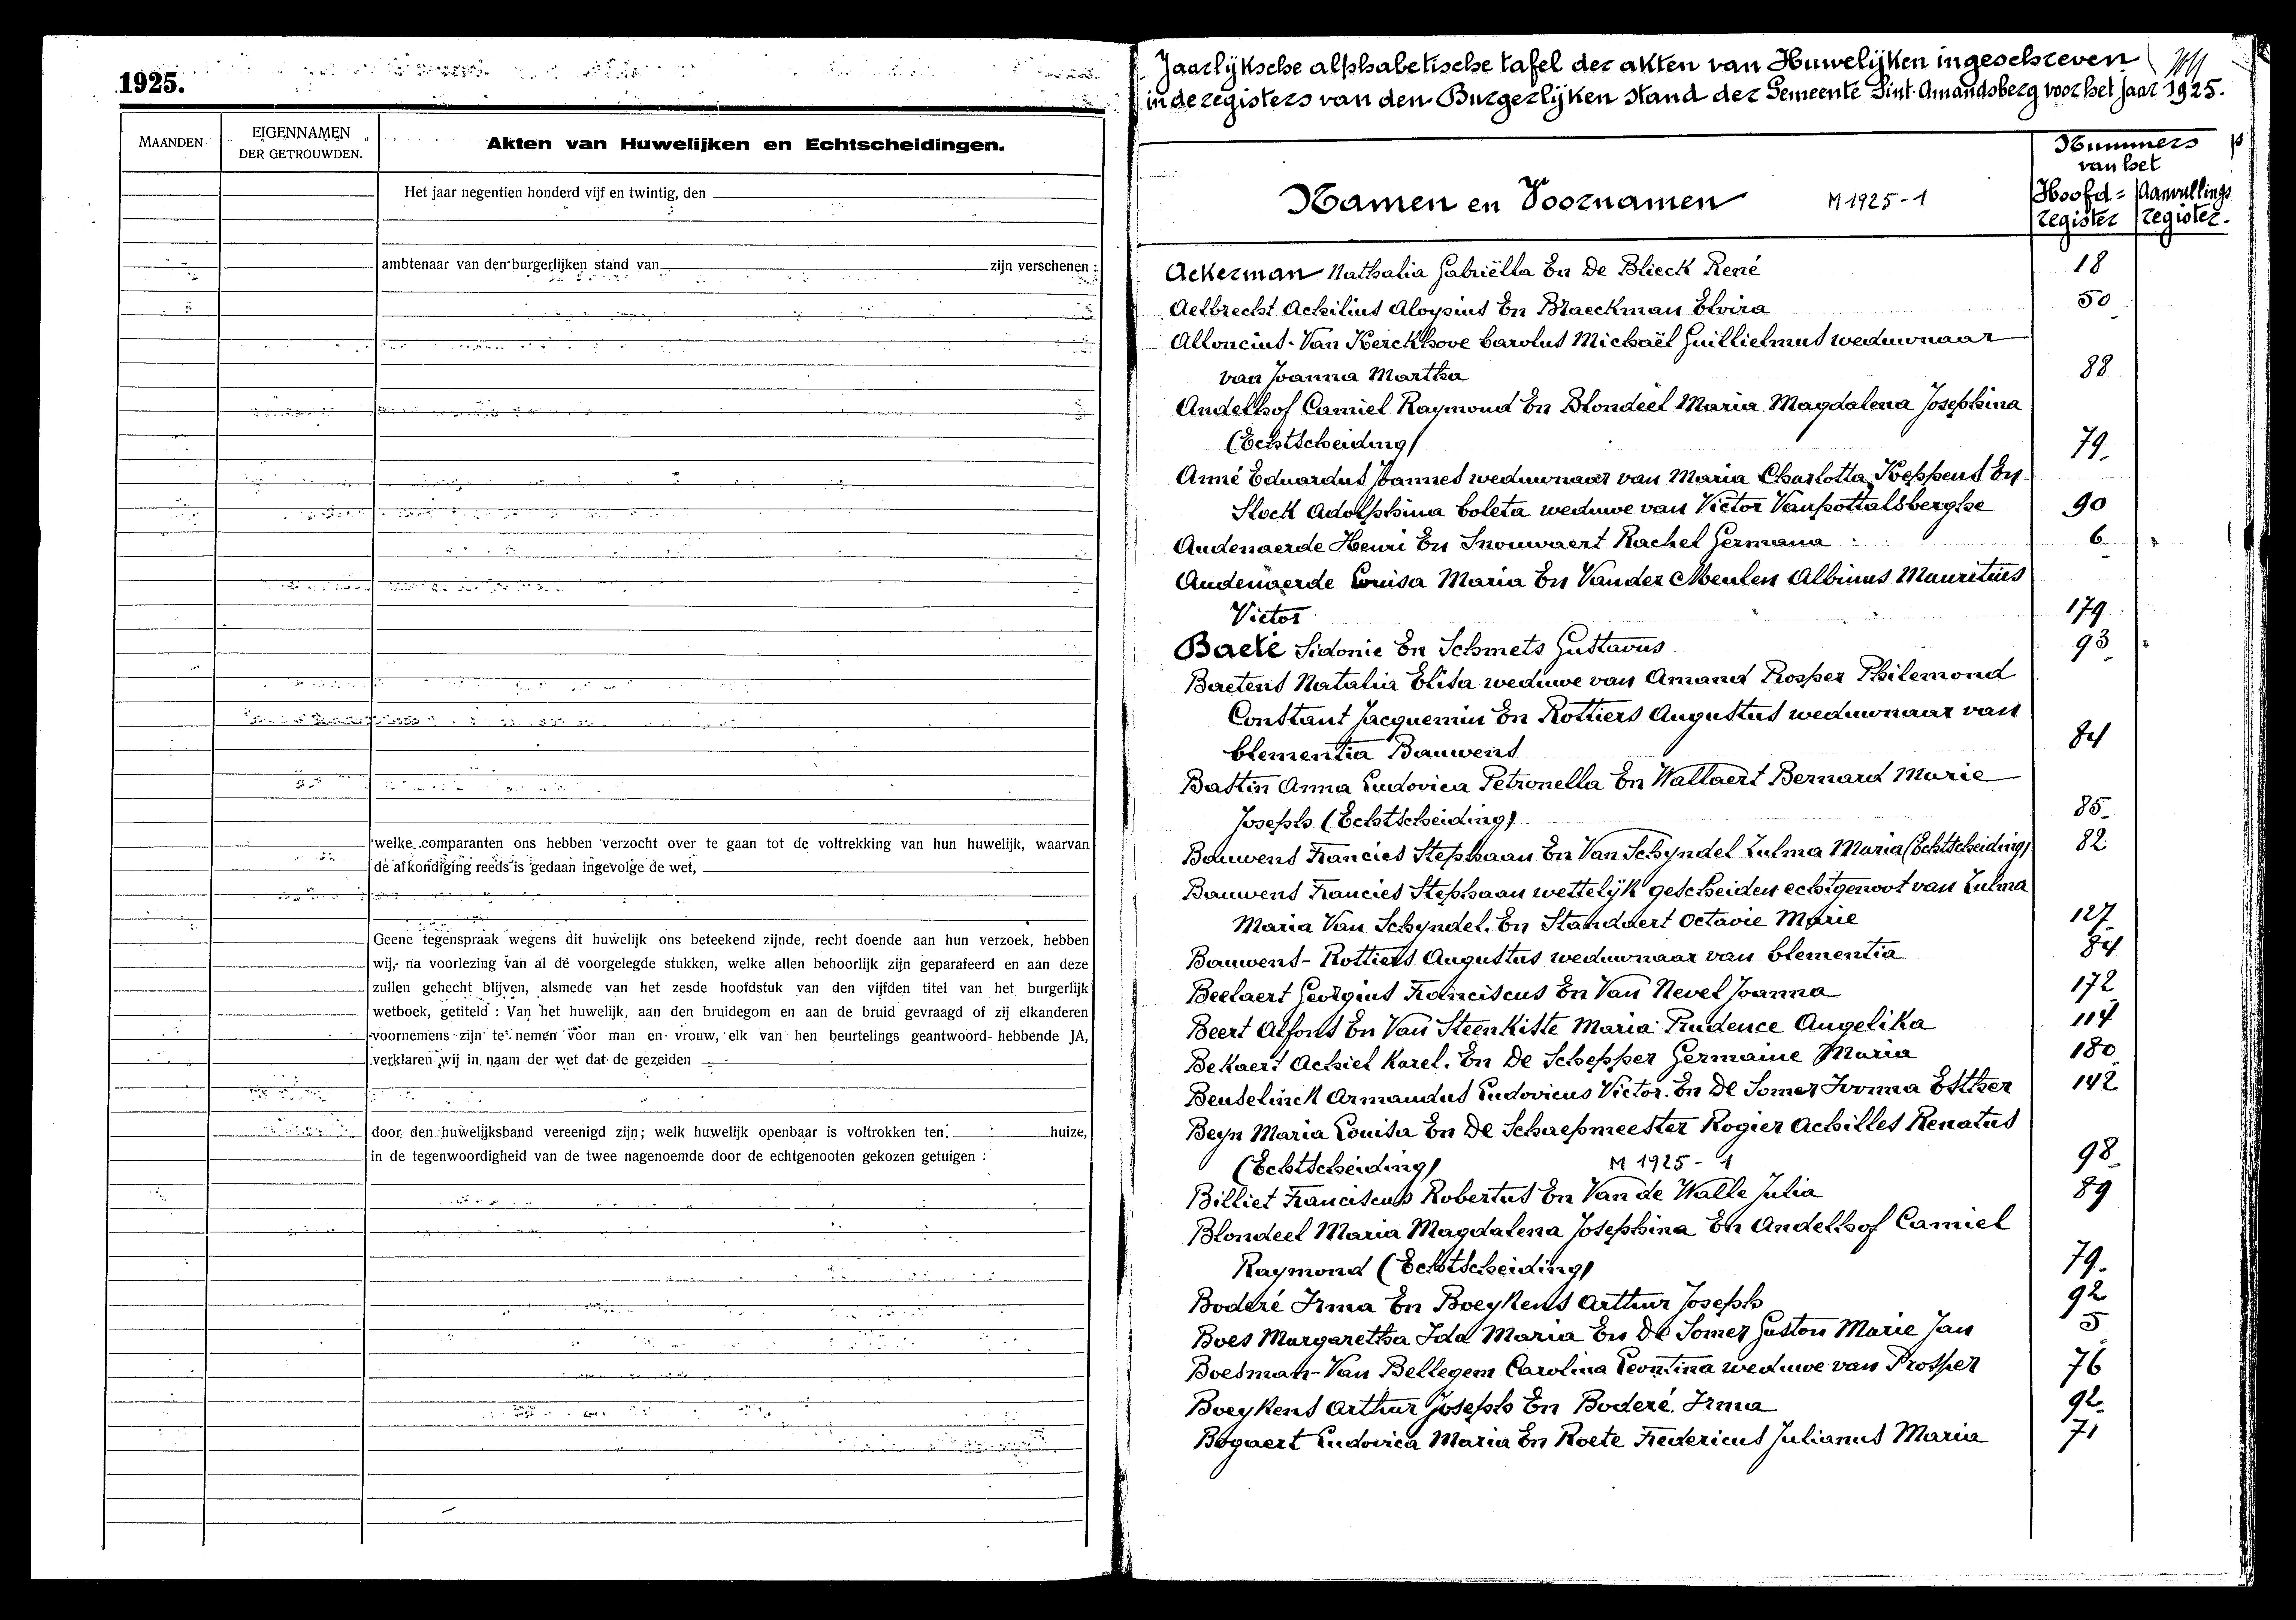 1925.
MAANDEN
EIGENNAMEN
DER GETROUWDEN.
Akten van Huwelijken en Echtscheidingen.
Het jaar negentien honderd vijf en twintig, den
ambtenaar van den burgerlijken stand van zijn verschenen :
welke comparanten ons hebben verzocht over te gaan tot de voltrekking van hun huwelijk, waarvan
de afkondiging reeds is gedaan ingevolge de wet,
Geene tegenspraak wegens dit huwelijk ons beteekend zijnde, recht doende aan hun verzoek, hebben
wij, na voorlezing van al de voorgelegde stukken, welke allen behoorlijk zijn geparafeerd en aan deze
zullen gehecht blijven, alsmede van het zesde hoofdstuk van den vijfden titel van het burgerlijk
wetboek, getiteld : Van het huwelijk, aan den bruidegom en aan de bruid gevraagd of zij elkanderen
voornemens zijn te nemen voor man en vrouw, elk van hen beurtelings geantwoord hebbende JA,
verklaren wij in naam der wet dat de gezeiden
door den huwelijksband vereenigd zijn; welk huwelijk openbaar is voltrokken ten huize,
in de tegenwoordigheid van de twee nagenoemde door de echtgenooten gekozen getuigen :
Jaarlijksche alphabetische tafel der akten van Huwelijken ingeschreven
in de registers van den Burgerlijken stand der Gemeente Sint-Amandsberg voor het jaar 1925.
Namen en Voornamen M 1925-1
Nummers
van het
Hoofd= Aanvullings
register register.
Ackerman Nathalia Gabriëlla En De Blieck René 18
Aelbrecht Achilius Aloysius En Braeckman Elvira 50
Alloncius-Van Kerckhove Carolus Michaël Guillielmus weduwnaar
van Joanna Martha 88
Andelhof Camiel Raymond En Blondeel Maria Magdalena Josephina
(Echtscheiding) 79.
Anné Eduardus Joannes weduwnaar van Maria Charlotta Keppens En
Stock Adolphina Coleta weduwe van Victor Vanpottalsberghe 90
Audenaerde Henri En Snouwaert Rachel Germana 6.
Audenaerde Louisa Maria En Vander Meulen Albinus Mauritius
Victor 179
Baeté Sidonie En Schmets Gustavus 93
Baetens Natalia Elisa weduwe van Amand Prosper Philemond
Constant Jacquemin En Rottiers Augustus weduwnaar van
Clementia Bauwens 84
Bastin Anna Ludovica Petronella En Wallaert Bernard Marie
Joseph (Echtscheiding) 85.
Bauwens Francies Stephaan En Van Schyndel Zulma Maria (Echtscheiding) 82
Bauwens Francies Stephaan wettelijk gescheiden echtgenoot van Zulma
Maria Van Schyndel. En Standaert Octavie Marie 127
Bauwens-Rottiers Augustus weduwnaar van Clementia 84
Beelaert Georgius Franciscus En Van Nevel Joanna 172
Beert Alfons En Van Steenkiste Maria Prudence Angelika 114
Bekaert Achiel Karel. En De Schepper Germaine Maria 180
Beuselinck Armandus Ludovicus Victor. En De Somer Ivonna Esther 142
Beyn Maria Louisa En De Schaepmeester Rogier Achilles Renatus
(Echtscheiding) M 1925-1 98.
Billiet Franciscus Robertus En Van de Walle Julia 89
Blondeel Maria Magdalena Josephina En Andelhof Camiel
Raymond (Echtscheiding) 79.
Boderé Irma En Boeykens Arthur Joseph 92
Boes Margaretha Ida Maria En De Somer Gaston Marie Jan 5
Boesman-Van Bellegem Carolina Leontina weduwe van Prosper 76
Boeykens Arthur Joseph En Boderé Irma 92.
Bogaert Ludovica Maria En Roete Fredericus Julianus Maria 71